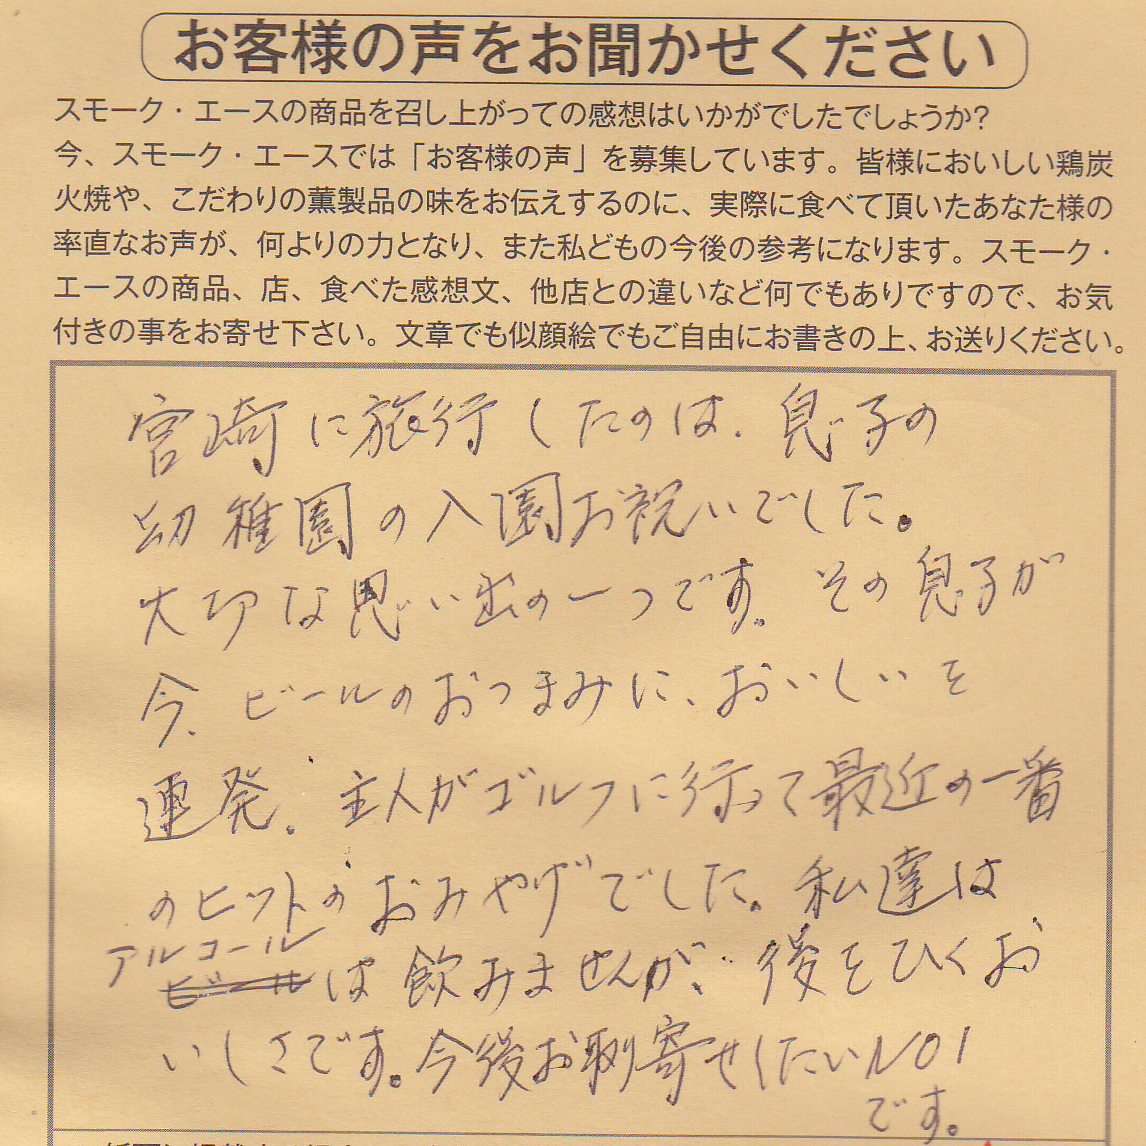 お客様の声をお聞かせください
スモーク・エースの商品を召し上がっての感想はいかがでしたでしょうか?
今、スモーク・エースでは「お客様の声」を募集しています。皆様においしい鶏炭
火焼や、こだわりの薫製品の味をお伝えするのに、実際に食べて頂いたあなた様の
率直なお声が、何よりの力となり、また私どもの今後の参考になります。スモーク・
エースの商品、店、食べた感想文、他店との違いなど何でもありですので、お気
付きの事をお寄せ下さい。文章でも似顔絵でもご自由にお書きの上、お送りください。
宮崎に旅行したのは、息子の
幼稚園の入園お祝いでした。
大切な思い出の一つです。その息子が
今、ビールのおつまみに、おいしいを
連発。主人がゴルフに行って最近の一番
のヒットのおみやげでした。私達は
アルコール
ビールは飲みませんが、後をひくお
いしさです。今後お取寄せしたいNO1
です。